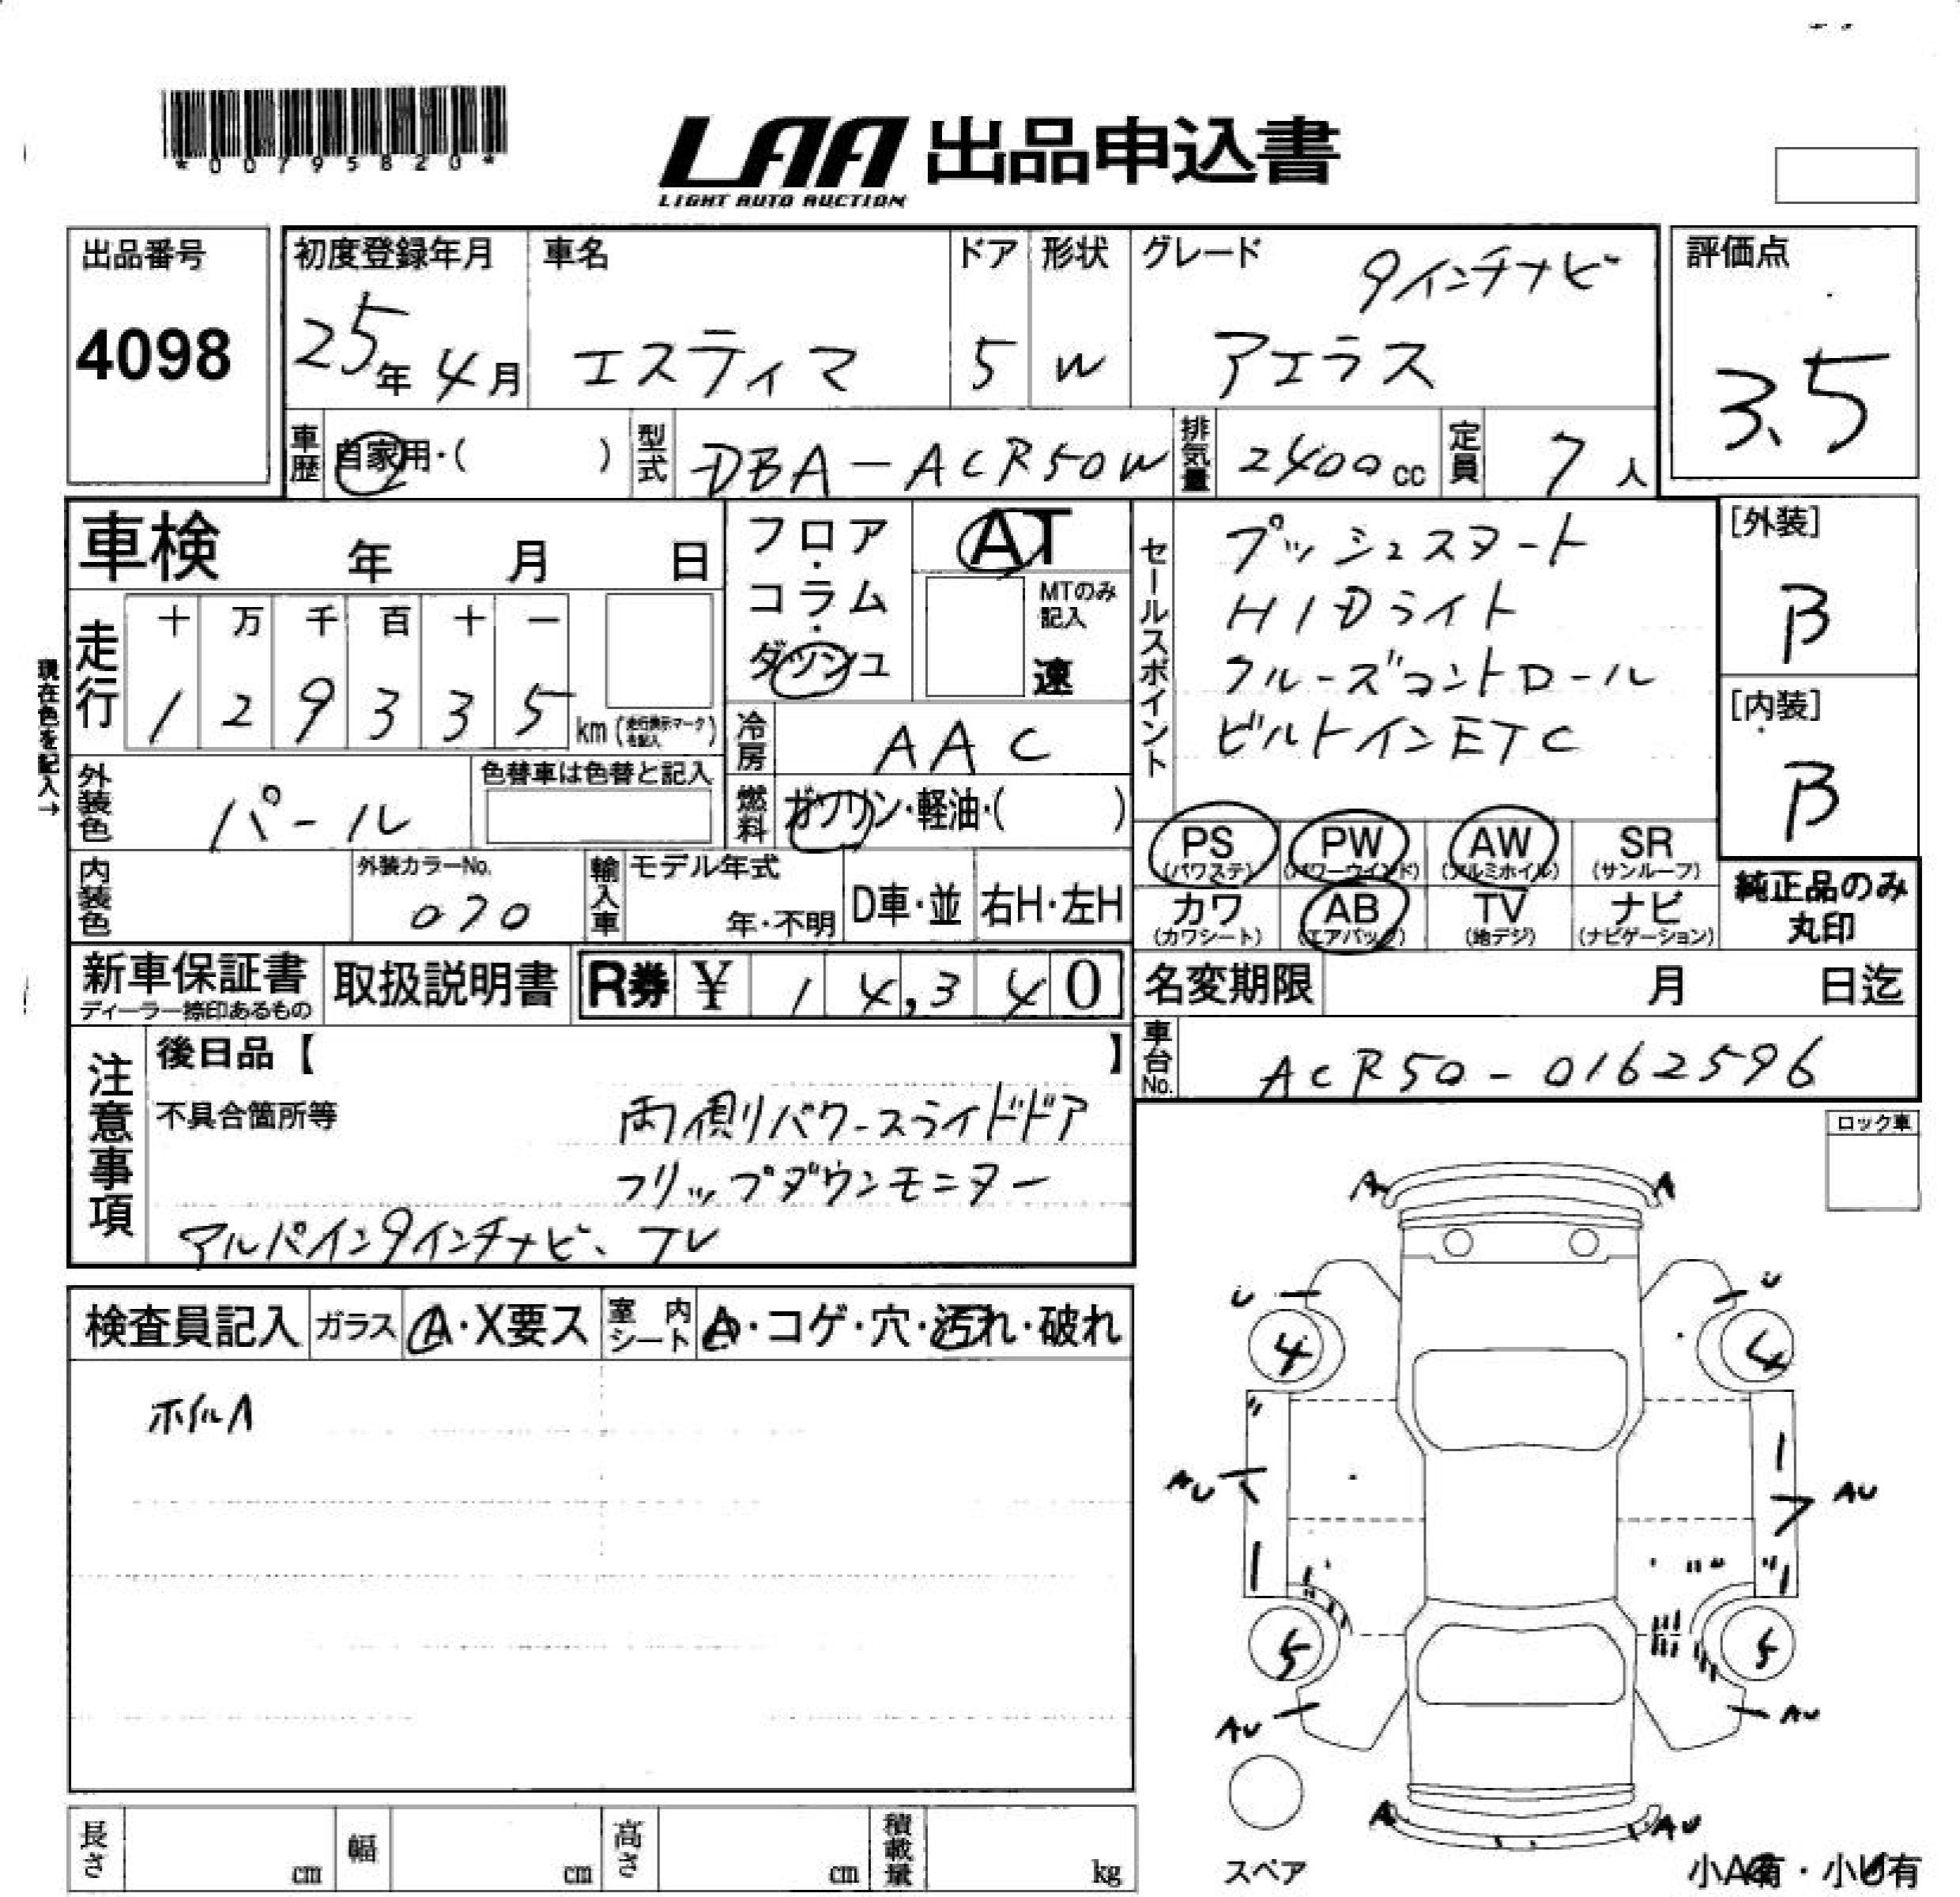 *00795820*
LAA 出品申込書
LIGHT AUTO AUCTION
出品番号
4098
初度登録年月
25年4月
車名
エスティマ
ドア
5
形状
W
グレード
9インチナビ
アエラス
評価点
3.5
車歴
自家用・( )
型式
DBA-ACR50W
排気量
2400cc
定員
7人
車検 年 月 日
フロア・コラム・ダッシュ
AT
MTのみ記入
速
セールスポイント
プッシュスタート
HIDライト
クルーズコントロール
ビルトインETC
[外装]
B
[内装]
B
現在色を記入→
走行
十 万 千 百 十 一
1 2 9 3 3 5 km (走行表示マークを記入)
冷房
AAC
外装色
パール
色替車は色替と記入
燃料
ガソリン・軽油・( )
PS (パワステ)
PW (パワーウインド)
AW (アルミホイル)
SR (サンルーフ)
カワ (カワシート)
AB (エアバッグ)
TV (地デジ)
ナビ (ナビゲーション)
純正品のみ
丸印
内装色
外装カラーNo.
070
輸入車
モデル年式
年・不明
D車・並
右H・左H
新車保証書
ディーラー捺印あるもの
取扱説明書
R券 ¥ 14,340
名変期限 月 日迄
車台No.
ACR50-0162596
注意事項
後日品【 】
不具合箇所等
両側パワースライドドア
フリップダウンモニター
アルパイン9インチナビ、TV
ロック車
検査員記入
ガラス
A・X要ス
室内シート
A・コゲ・穴・汚れ・破れ
ホイルA
A A
U U
4 4
AU AU
5 5
AU AU
A AU
スペア
小A有・小U有
長さ cm
幅 cm
高さ cm
積載量 kg